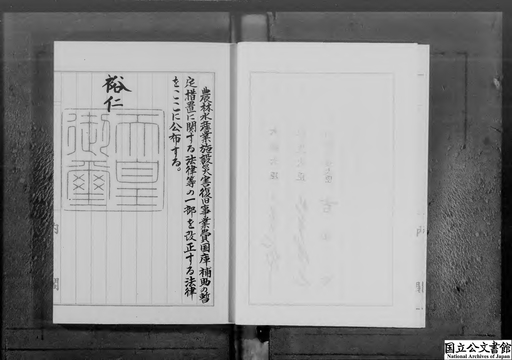 農林水産業施設災害復旧事業費国庫補助の暫
定措置に関する法律等の一部を改正する法律
をここに公布する。
裕仁
天皇
御璽
国立公文書館
National Archives of Japan